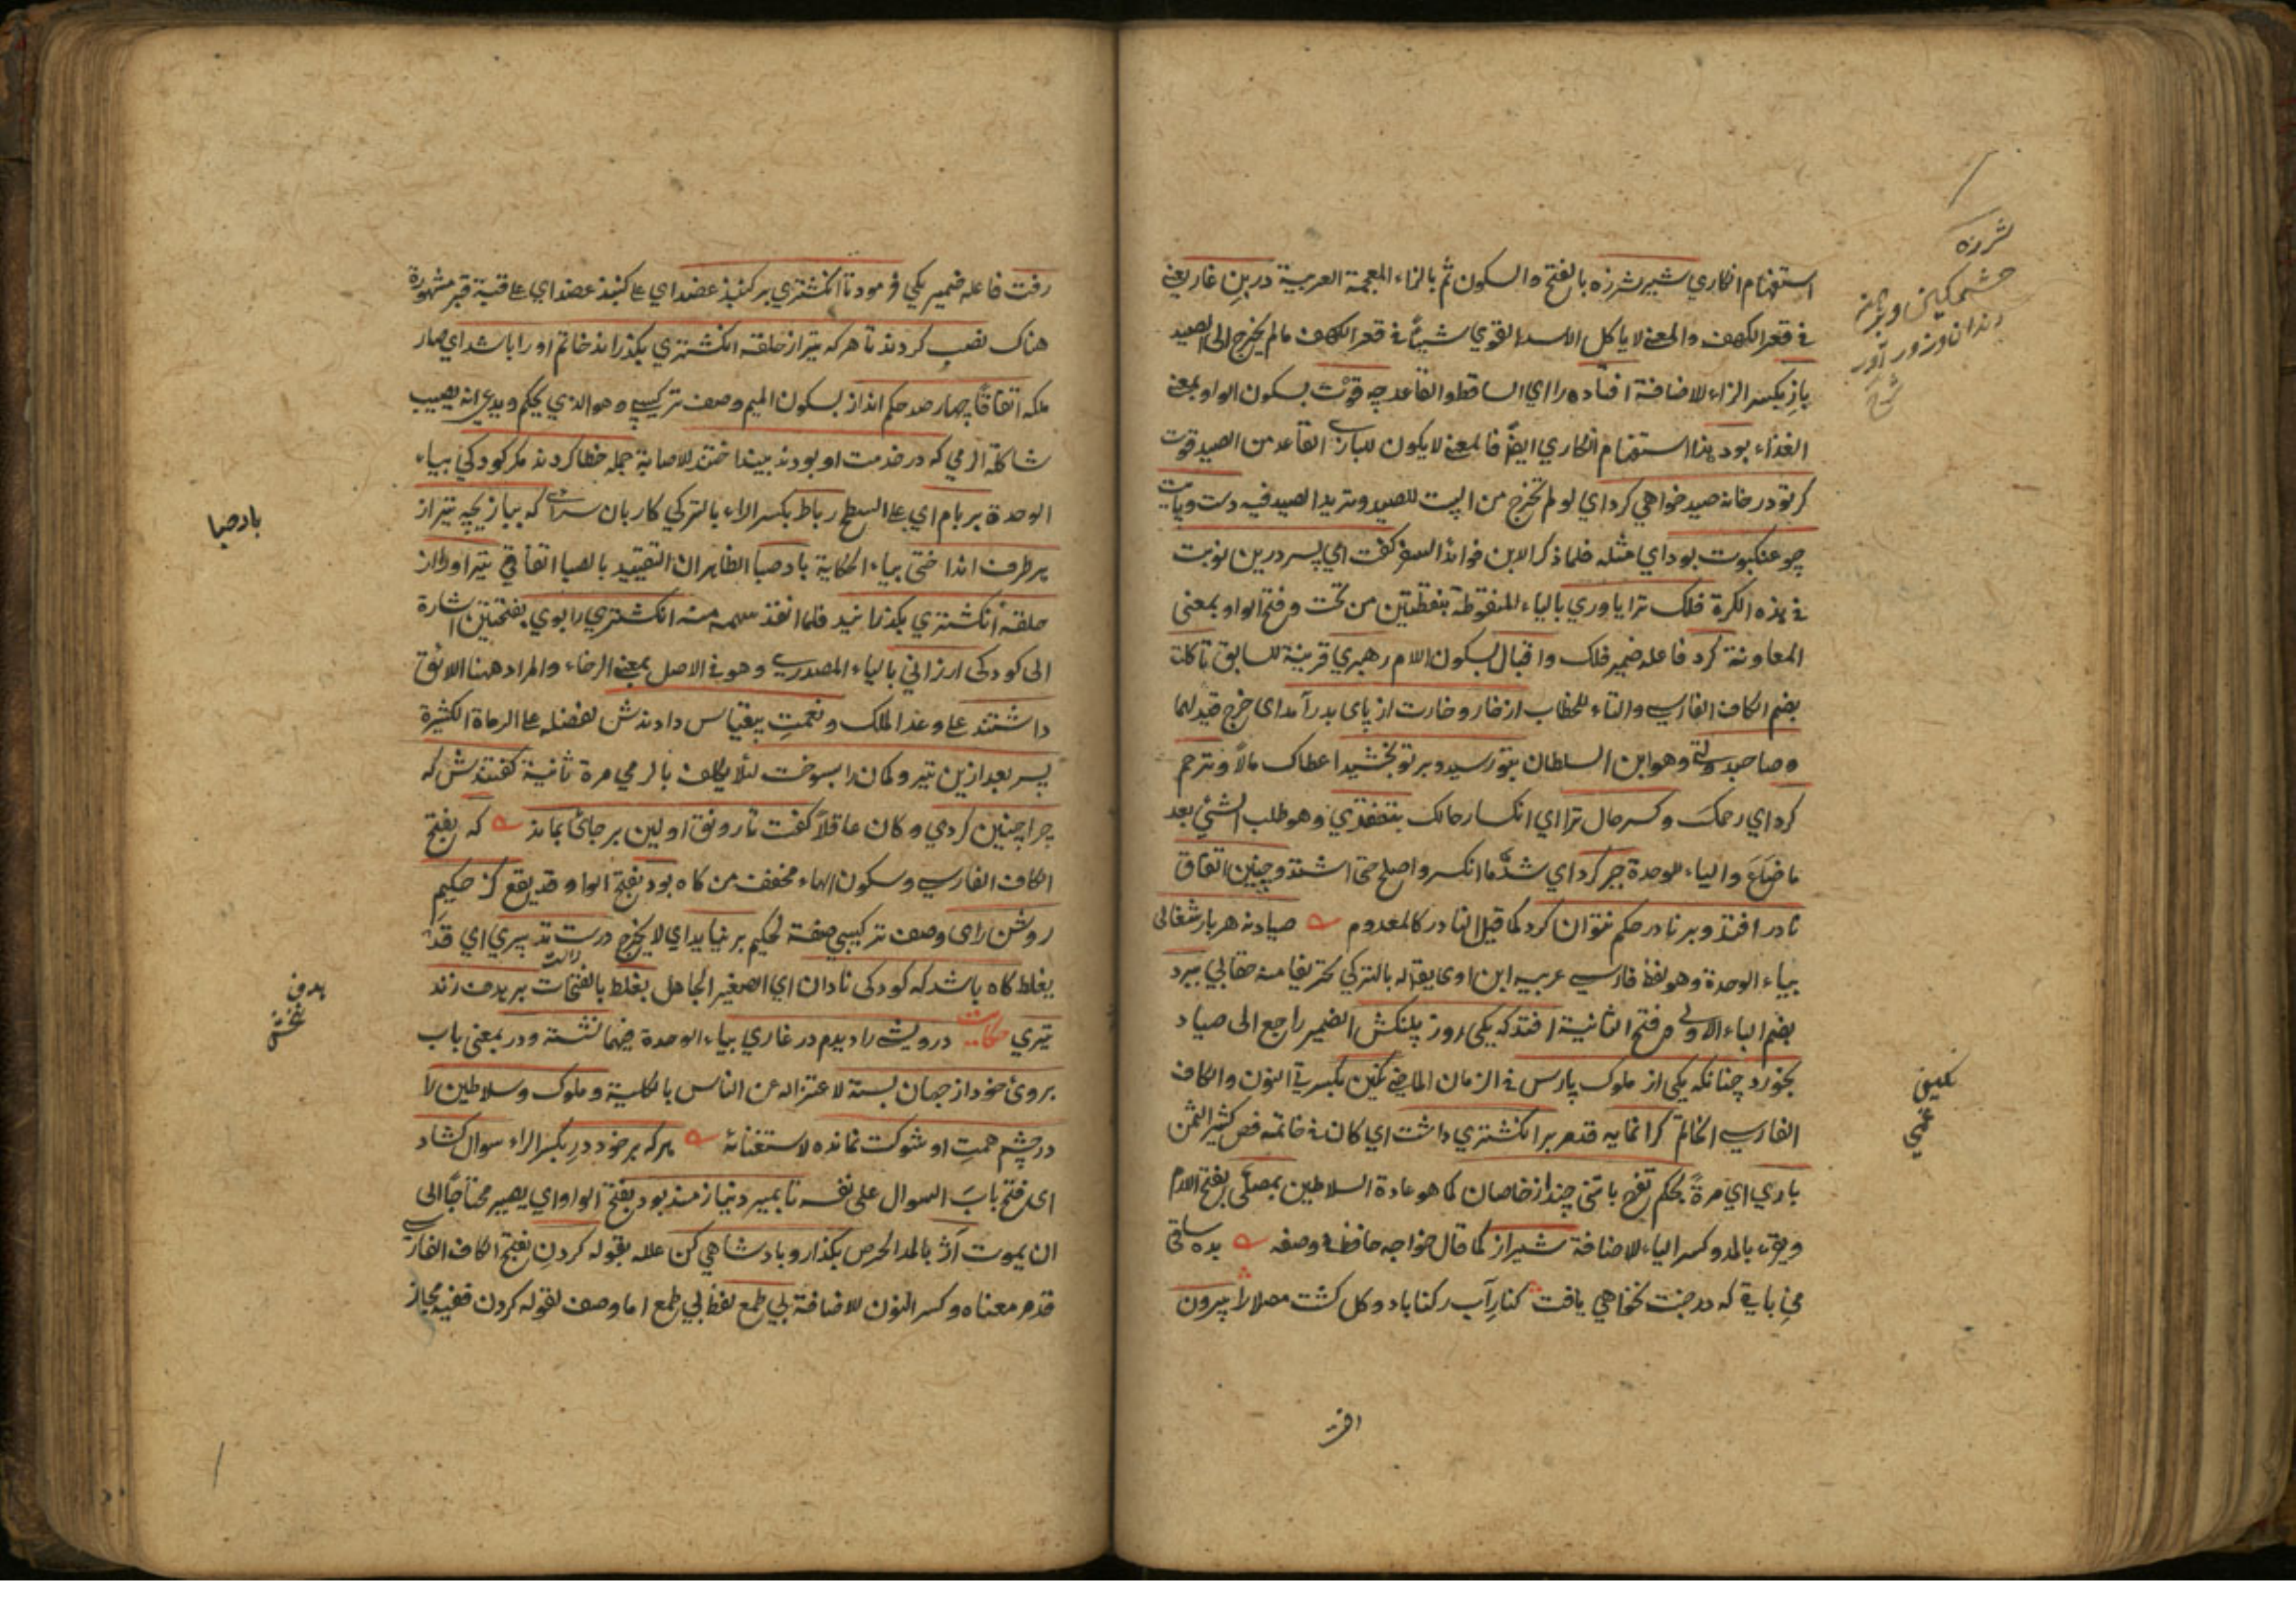 استفهام انكاري شير شرزه بالفتح والسكون ثم بالزاء المعجمة العربية در بن غار يعني
في قعر الكهف والمعنى لا ياكل الاسد القوي شيئا في قعر الكهف ما لم يخرج الى الصيد
باز بكسر الزاء للاضافة افتاده را اي الساقط والقاعد چه قوت بسكون الواو بمعنى
الغذاء بود هذا استفهام انكاري ايضا فالمعنى لا يكون للبازي القاعد من الصيد قوت
كر تو در خانه صيد خواهي كرد اي لو لم تخرج من البيت للصيد وتريد الصيد فيه دست وپايت
چو عنكبوت بود اي مثله فلما ذكر الابن فوائد السفر كفت اي پسر درين نوبت
في هذه الكرة فلك ترا ياوري بالياء المنقوطة بنقطتين من تحت وفتح الواو بمعنى
المعاونة كرد فاعله ضمير فلك واقبال بسكون اللام رهبري قرينة للسابق تا كلت
بضم الكاف الفارسي والتاء للخطاب از خار وخارت از پاى بدر آمد اى خرج قيد لهما
وصاحب دولتي وهو ابن السلطان بتو رسيد وبر تو بخشيد اعطاك مالا وترحم
كرد اي رحمك وكسر حال ترا اي انكسار حالك بتفقدي وهو طلب الشئ بعد
ما ضاع والياء للوحدة جبر كرد اي شد ما انكسر واصلح حتى اشتد وچنين اتفاق
نادر افتد وبر نادر حكم نتوان كرد كما قيل النادر كالمعدوم صياد نه هر بار شغالى
بياء الوحدة وهو لفظ فارسي عربيه ابن اوى يقال له بالتركي تحريفا منه چقالي ببرد
بضم الباء الاولى وفتح الثانية افتد كه يكى روز پلنكش الضمير راجع الى صياد
بخورد چنانكه يكى از ملوك پارس في الزمان الماضي نكين بكسرتي النون والكاف
الفارسي الخاتم كرانمايه قدمر بر انكشتري داشت اي كان في خاتمه فص كثير الثمن
باري اي مرة بحكم تفرج با تني چند از خاصان كما هو عادة السلاطين بمصلى بفتح اللام
ويقرء بالمد وكسر الياء للاضافة شيراز كما قال خواجه حافظ في وصفه بده ساقي
مي باقي كه در جنت نخواهي يافت كنار آب ركناباد و كلكشت مصلا را بيرون
شرزه
خشمكين و برهنه
دندان وزور آور
شرح
نكين
افت
رفت فاعله ضمير يكي فرمود تا انكشتري بر كنبد عضد اي على كنبذ عضد اي على قبة قبر مشهورة
هناك نصب كردند تا هر كه تير از حلقه انكشتري بكذراند خاتم او را باشد اي صار
ملكه اتفاقا چهار صد حكم انداز بسكون الميم وصف تركيبي وهو الذي يحكم ويدعي انه يصيب
شاكلة الرمي كه در خدمت او بودند بينداختند للاصابة جمله خطا كردند مكر كودكي بياء
الوحدة بر بام اي على السطح رباط بكسر الراء بالتركي كاربان سراي كه ببازيچه تير از
هر طرف انداختي بياء الحكاية باد صبا الظاهر ان التقييد بالصبا اتفاقي تير او را از
حلقه انكشتري بكذرانيد فلما انفذ سهمه منه انكشتري را بوي بفتحتين اشارة
الى كودكى ارزاني بالياء المصدري وهو في الاصل بمعنى الرخاء والمراد ههنا اللائق
داشتند على وعد الملك ونعمت بيقياس دادندش لفضله على الرماة الكثيرة
پسر بعد ازين تير وكمان را بسوخت لئلا يكلف بالرمي مرة ثانية كفتندش كه
چرا چنين كردي وكان عاقلا كفت تا رونق اولين بر جاى بماند كه بفتح
الكاف الفارسي وسكون الهاء مخفف من كاه بود بفتح الواو قد يقع كز حكيم
روشن راى وصف تركيبي صفة لحكيم بر نيايد اي لا يخرج درست تدبيري اي قد
يغلط كاه باشد كه كودكى نادان اي الصغير الجاهل بغلط بالفتحات بر هدف زند
تيري حكايت درويشي را ديدم در غاري بياء الوحدة فيهما نشسته ودر بمعنى باب
بروى خود از جهان بسته لاعتزاله عن الناس بالكلية وملوك وسلاطين را
در چشم همت او شوكت نمانده لاستغنائه هر كه بر خود در بكسر الراء سوال كشاد
اى فتح باب السوال على نفسه تا بميرد نيازمند بود بفتح الواو اي يصير محتاجا الى
ان يموت آز بالمد الحرص بكذار وپادشاهي كن علله بقوله كردن بفتح الكاف الفارسي
قدمر معناه وكسر النون للاضافة بي طمع لفظ بي طمع اما وصف لقوله كردن ففيه مجاز
باد صبا
هدف